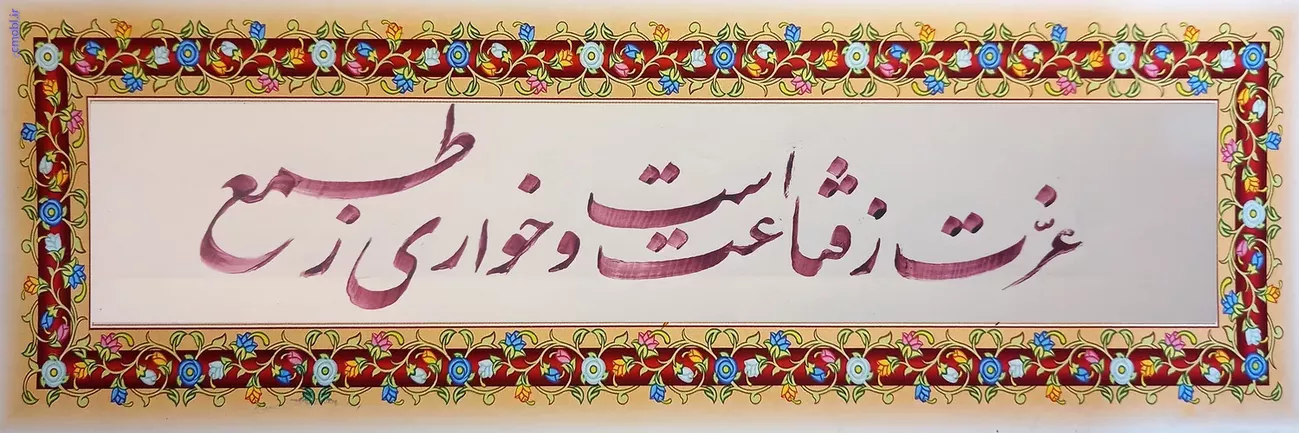 عزّت ز قناعت است و خواری ز طمع
cmobl.ir